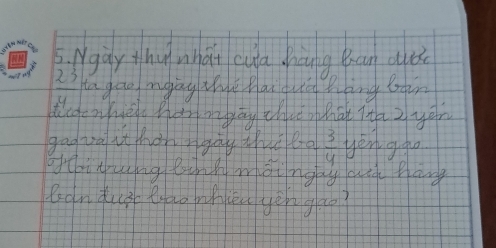 5. Ngày thứ nhất cửa hàng bán được
2 3/4 tạ gạo, ngày thứ hai cửa hàng bán
được nhiều hơn ngày thứ nhất 1 tạ 2 yến
gạo và ít hơn ngày thứ ba 3/4 yến gạo
Hỏi trung bình mỗi ngày cửa hàng
bán được bao nhiêu yến gạo?